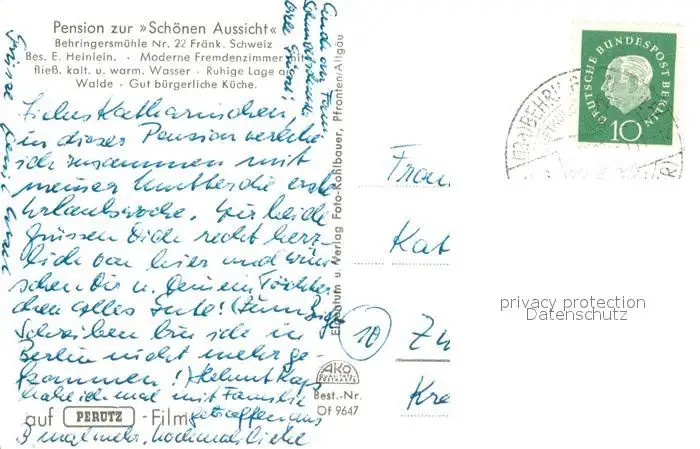 Pension zur »Schönen Aussicht«
Behringersmühle Nr. 22 Fränk. Schweiz
Bes. E. Heinlein. · Moderne Fremdenzimmer mit
fließ. kalt. u. warm. Wasser · Ruhige Lage am
Walde · Gut bürgerliche Küche.
Liebes Katharinchen,
in dieser Pension verlebe
ich zusammen mit
meiner Mutter die erste
Urlaubswoche. Wir beide
grüssen Dich recht herz-
lich von hier und wün-
schen Dir u. Deinem Töchter-
chen alles Gute!
Schreiben bin ich in
Berlin nicht mehr ge-
kommen!) Helmut
habe ich mal mit Familie
getroffen
nochmals liebe
auf PERUTZ -Film
Eigentum u. Verlag Foto-Kohlbauer, Pfronten/Allgäu
AKO
Best.-Nr.
Of 9647
Frau
Kat
10
Kre
DEUTSCHE BUNDESPOST BERLIN
10
privacy protection
Datenschutz